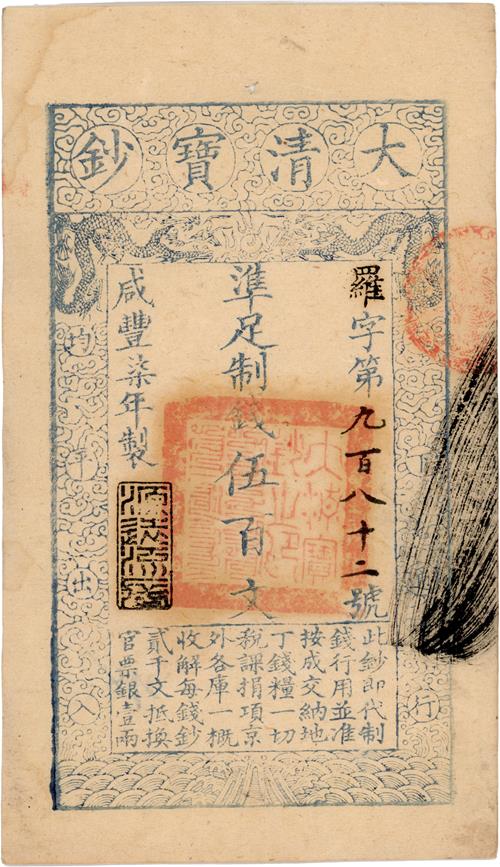 大清寶鈔
羅字第九百八十二號
準足制錢伍百文
咸豐柒年製
此鈔即代制
錢行用並准
按成交納地
丁錢糧一切
稅課捐項京
外各庫一概
收解每錢鈔
貳千文抵換
官票銀壹兩
行
均平出入